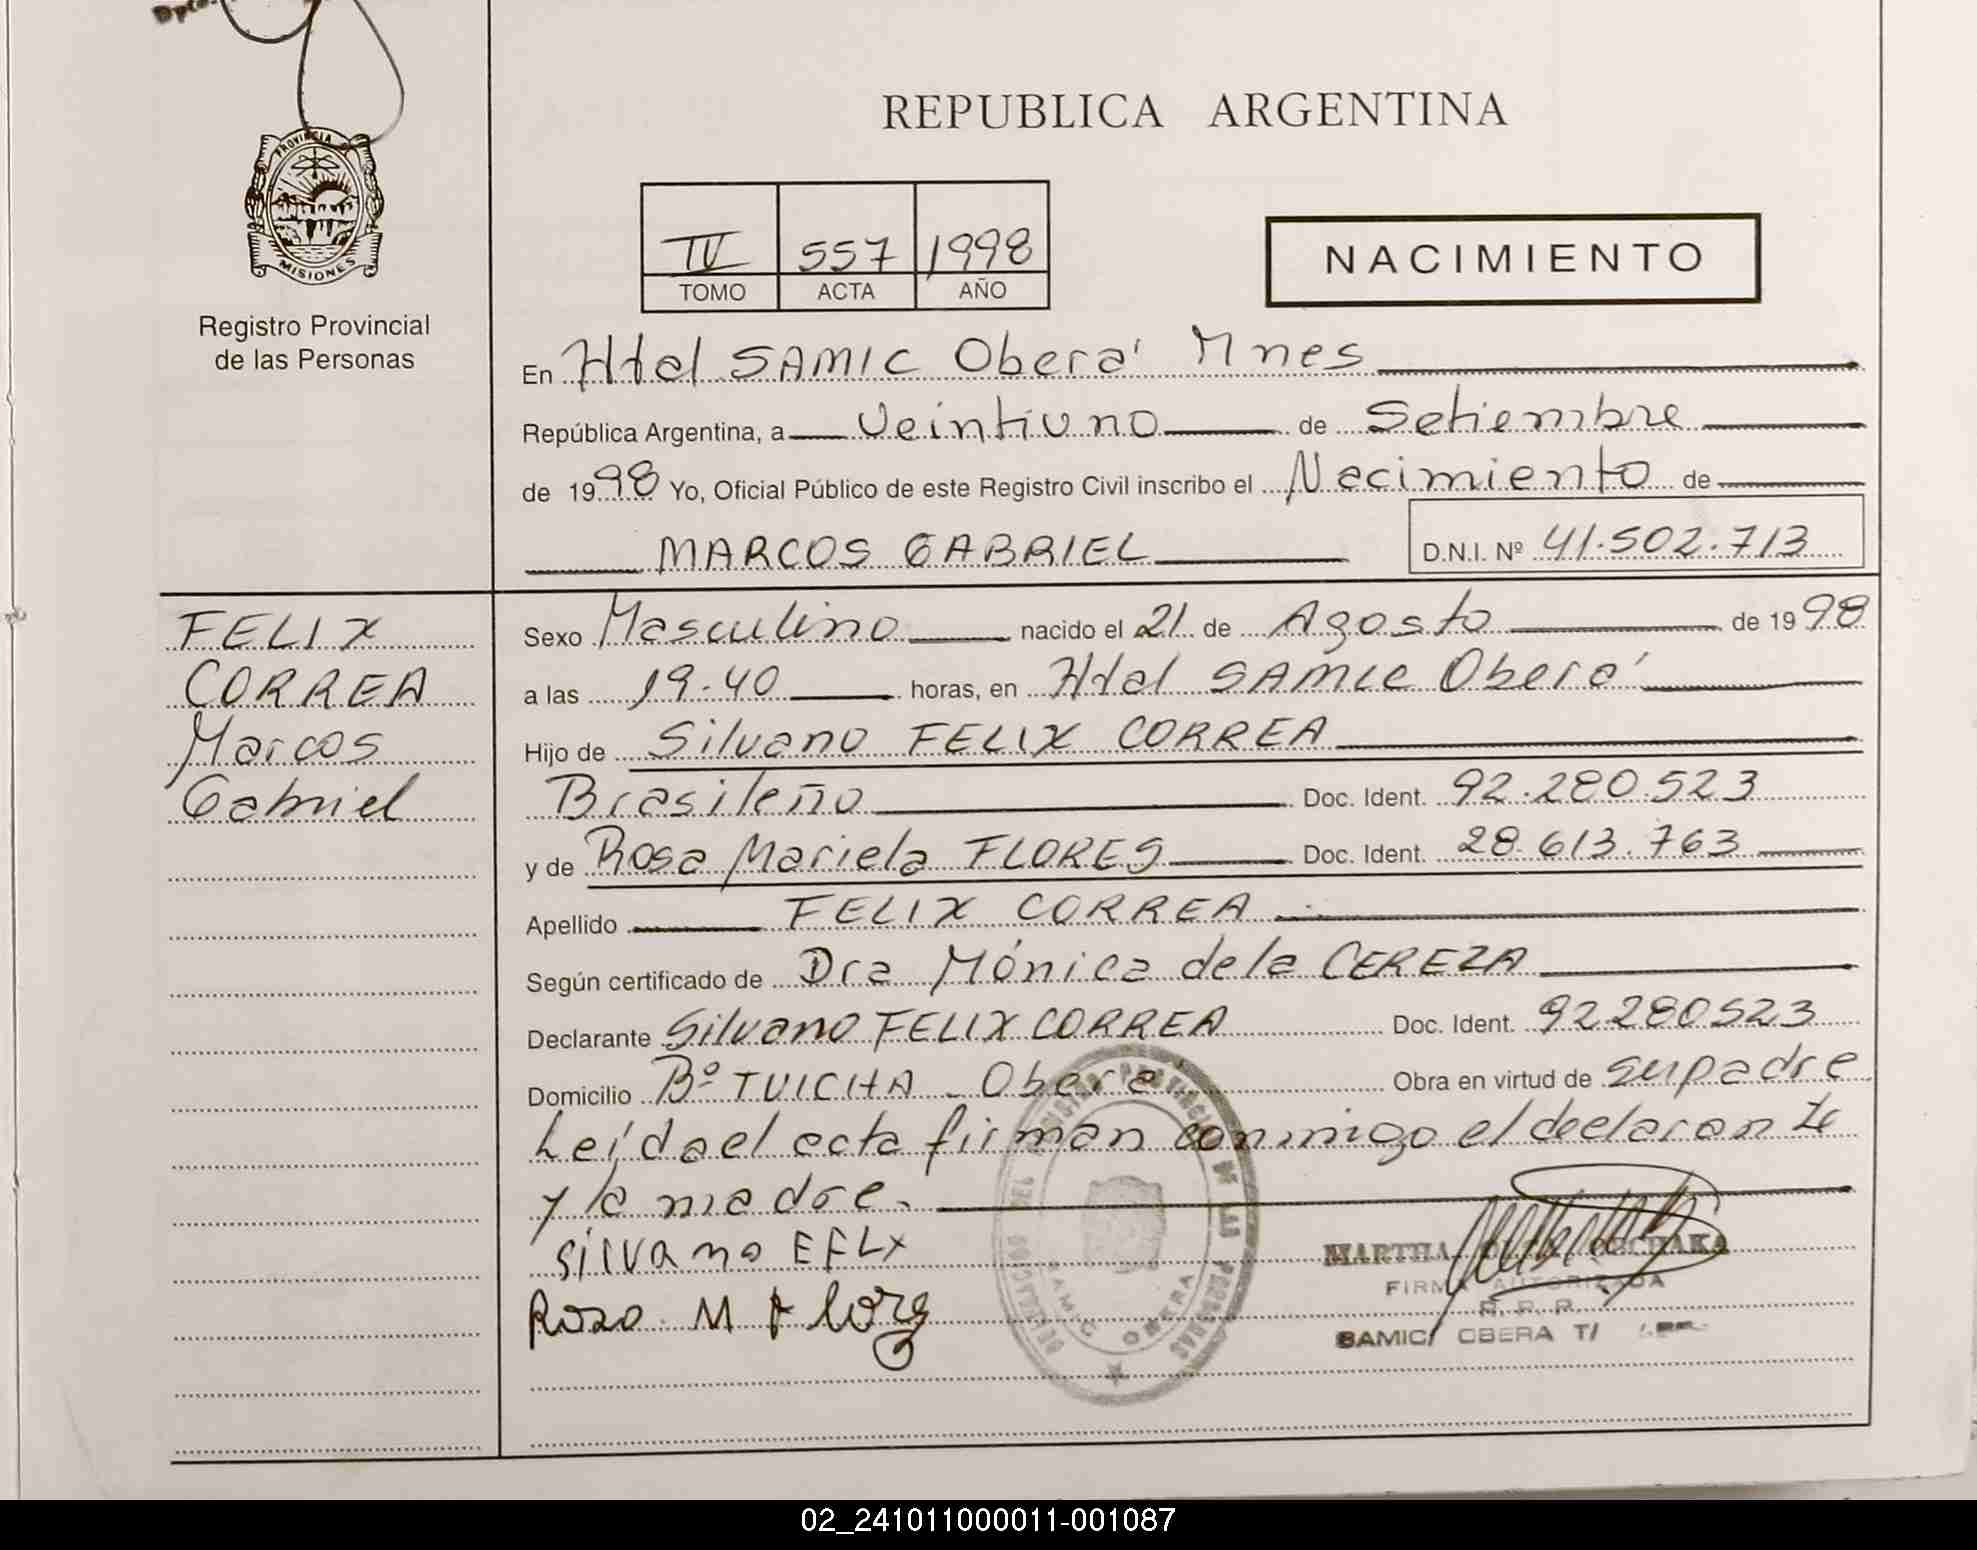 Dpto.
PROVINCIA
MISIONES
Registro Provincial
de las Personas
REPUBLICA ARGENTINA
IV 557 1998
TOMO ACTA AÑO
NACIMIENTO
En Htal SAMIC Oberá Mnes
República Argentina, a Veintiuno de Setiembre
de 1998 Yo, Oficial Público de este Registro Civil inscribo el Nacimiento de
MARCOS GABRIEL D.N.I. Nº 41.502.713
FELIX
CORREA
Marcos
Gabriel
Sexo Masculino nacido el 21 de Agosto de 1998
a las 19.40 horas, en Htal SAMIC Oberá
Hijo de Silvano FELIX CORREA
Brasileño Doc. Ident. 92.280.523
y de Rosa Mariela FLORES Doc. Ident. 28.613.763
Apellido FELIX CORREA
Según certificado de Dra Mónica de la CEREZA
Declarante Silvano FELIX CORREA Doc. Ident. 92280523
Domicilio Bº TUICHA - Oberá Obra en virtud de su padre
Leída el acta firman conmigo el declarante
y la madre.
Silvano EFLX
Rosa M Florez
PROVINCIAL DE LAS PERSONAS
SAMIC OBERA
MARTHA
FIRMA AUTORIZADA
R. P. P.
SAMIC/ OBERA T/
02_241011000011-001087